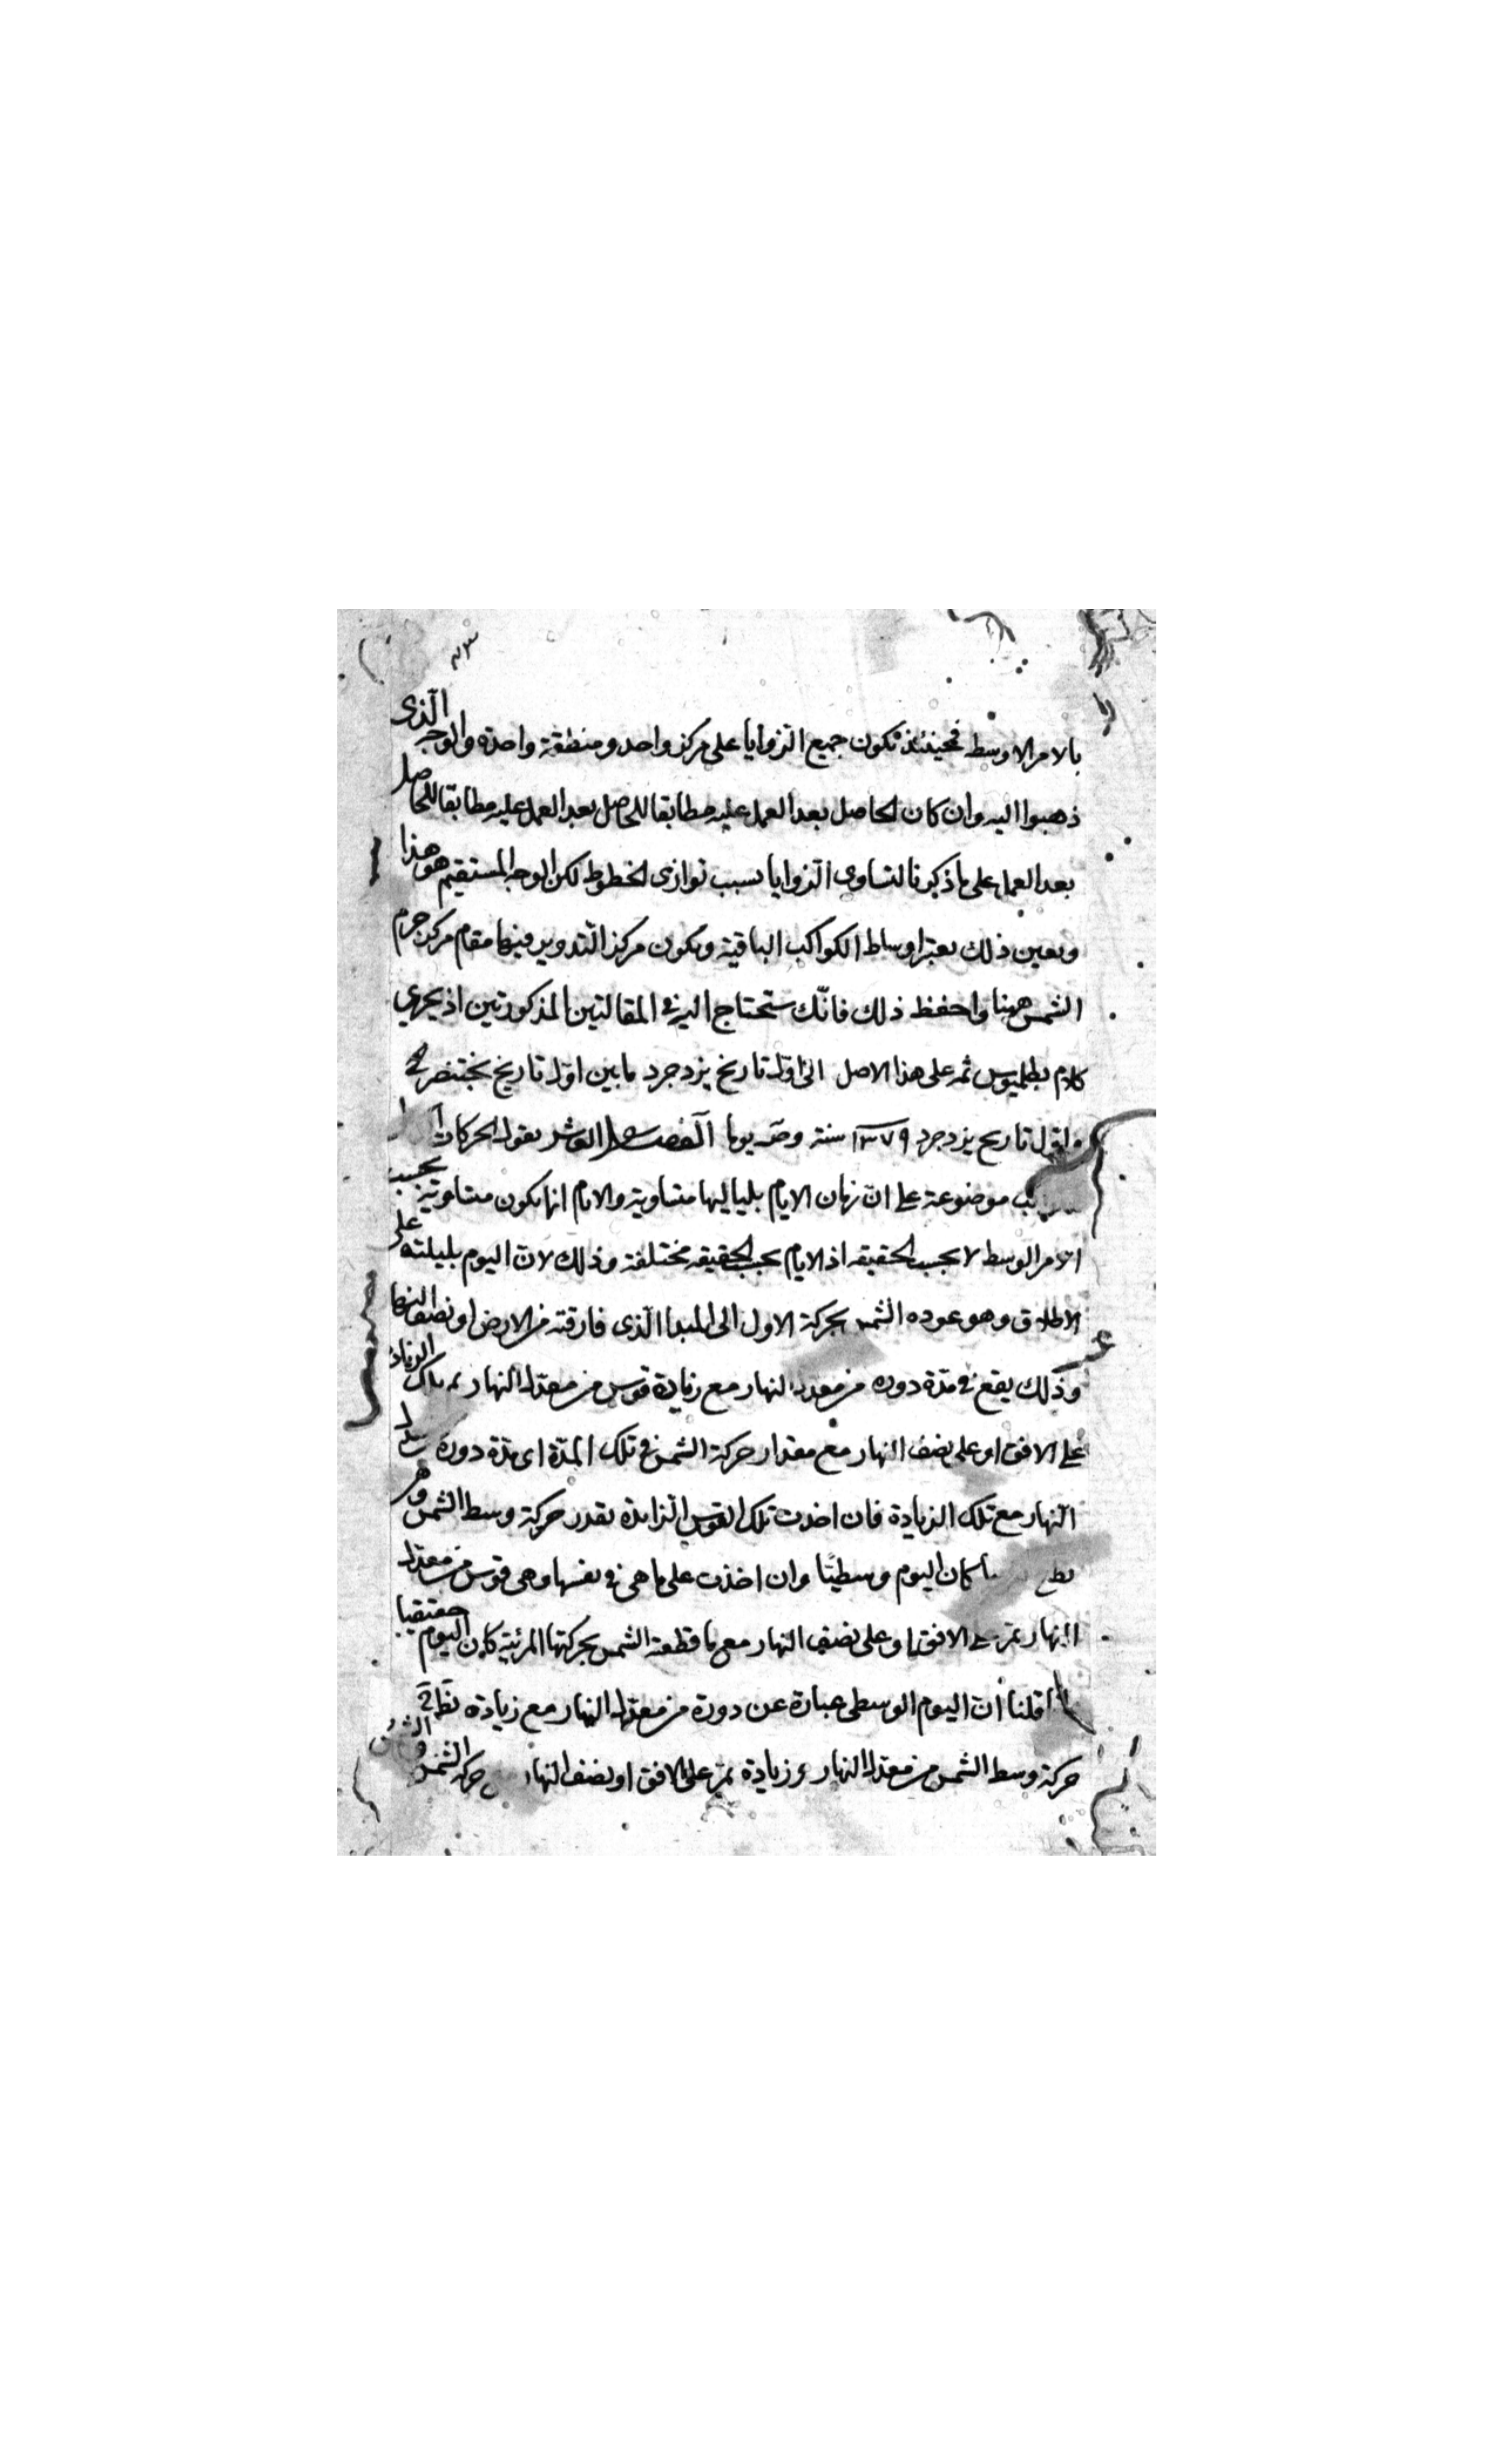 بالامر الاوسط فحينئذ تكون جميع الزوايا على مركز واحد ومنطقة واحدة والوجه الّذى
ذهبوا اليه وان كان الحاصل بعد العمل عليه مطابقا للحاصل بعد العمل عليه مطابقا للحاصل
بعد العمل على ما ذكرنا لتساوى الزوايا بسبب توازى الخطوط لكن الوجه المستقيم هو هذا
وبعين ذلك يعتبر اوساط الكواكب الباقية ويكون مركز التدوير فيها مقام مركز جرم
الشمس ههنا واحفظ ذلك فانّك ستحتاج اليه فى المقالتين المذكورتين اذ يجرى
كلام بطلميوس ثمه على هذا الاصل الى اول تاريخ يزدجرد ما بين اول تاريخ بختنصر
واول تاريخ يزدجرد ١٣٧٩ سنة و يوما الفصل العاشر يقول الحركات
موضوعة على انّ زمان الايام بلياليها متساوية والايام انما يكون متساوية بحسب
الامر الوسط لا بحسب الحقيقه اذ الايام بحسب الحقيقه مختلفة وذلك لان اليوم بليلته على
الاطلاق وهو عوده الشمس بحركة الاول الى المبدا الّذى فارقته من الارض او نصف النهار
وذلك يقع فى مدّة دوره من معدل النهار مع زيادة قوس من معدل النهار تلك الزيادة
على الافق او على نصف النهار مع مقدار حركة الشمس فى تلك المدّة اى مدّة دورة
النهار مع تلك الزيادة فان اخذت تلك القوس الزايدة بقدر حركة وسط الشمس
كان اليوم وسطيّا وان اخذت على ما هى فى نفسها وهى قوس من معدل
النهار تمر على الافق او على نصف النهار مع ما قطعة الشمس بحركتها المرئية كان اليوم حقيقيا
قلنا انّ اليوم الوسطى عبارة عن دورة من معدل النهار مع زيادة
حركة وسط الشمس من معدل النهار زيادة تمر على الافق او نصف النهار حركه الشمس